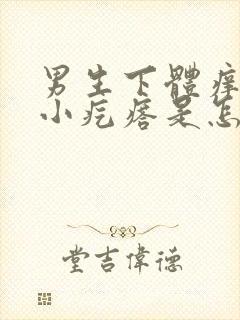 男生下體癢
小疙瘩是怎
堂吉偉德